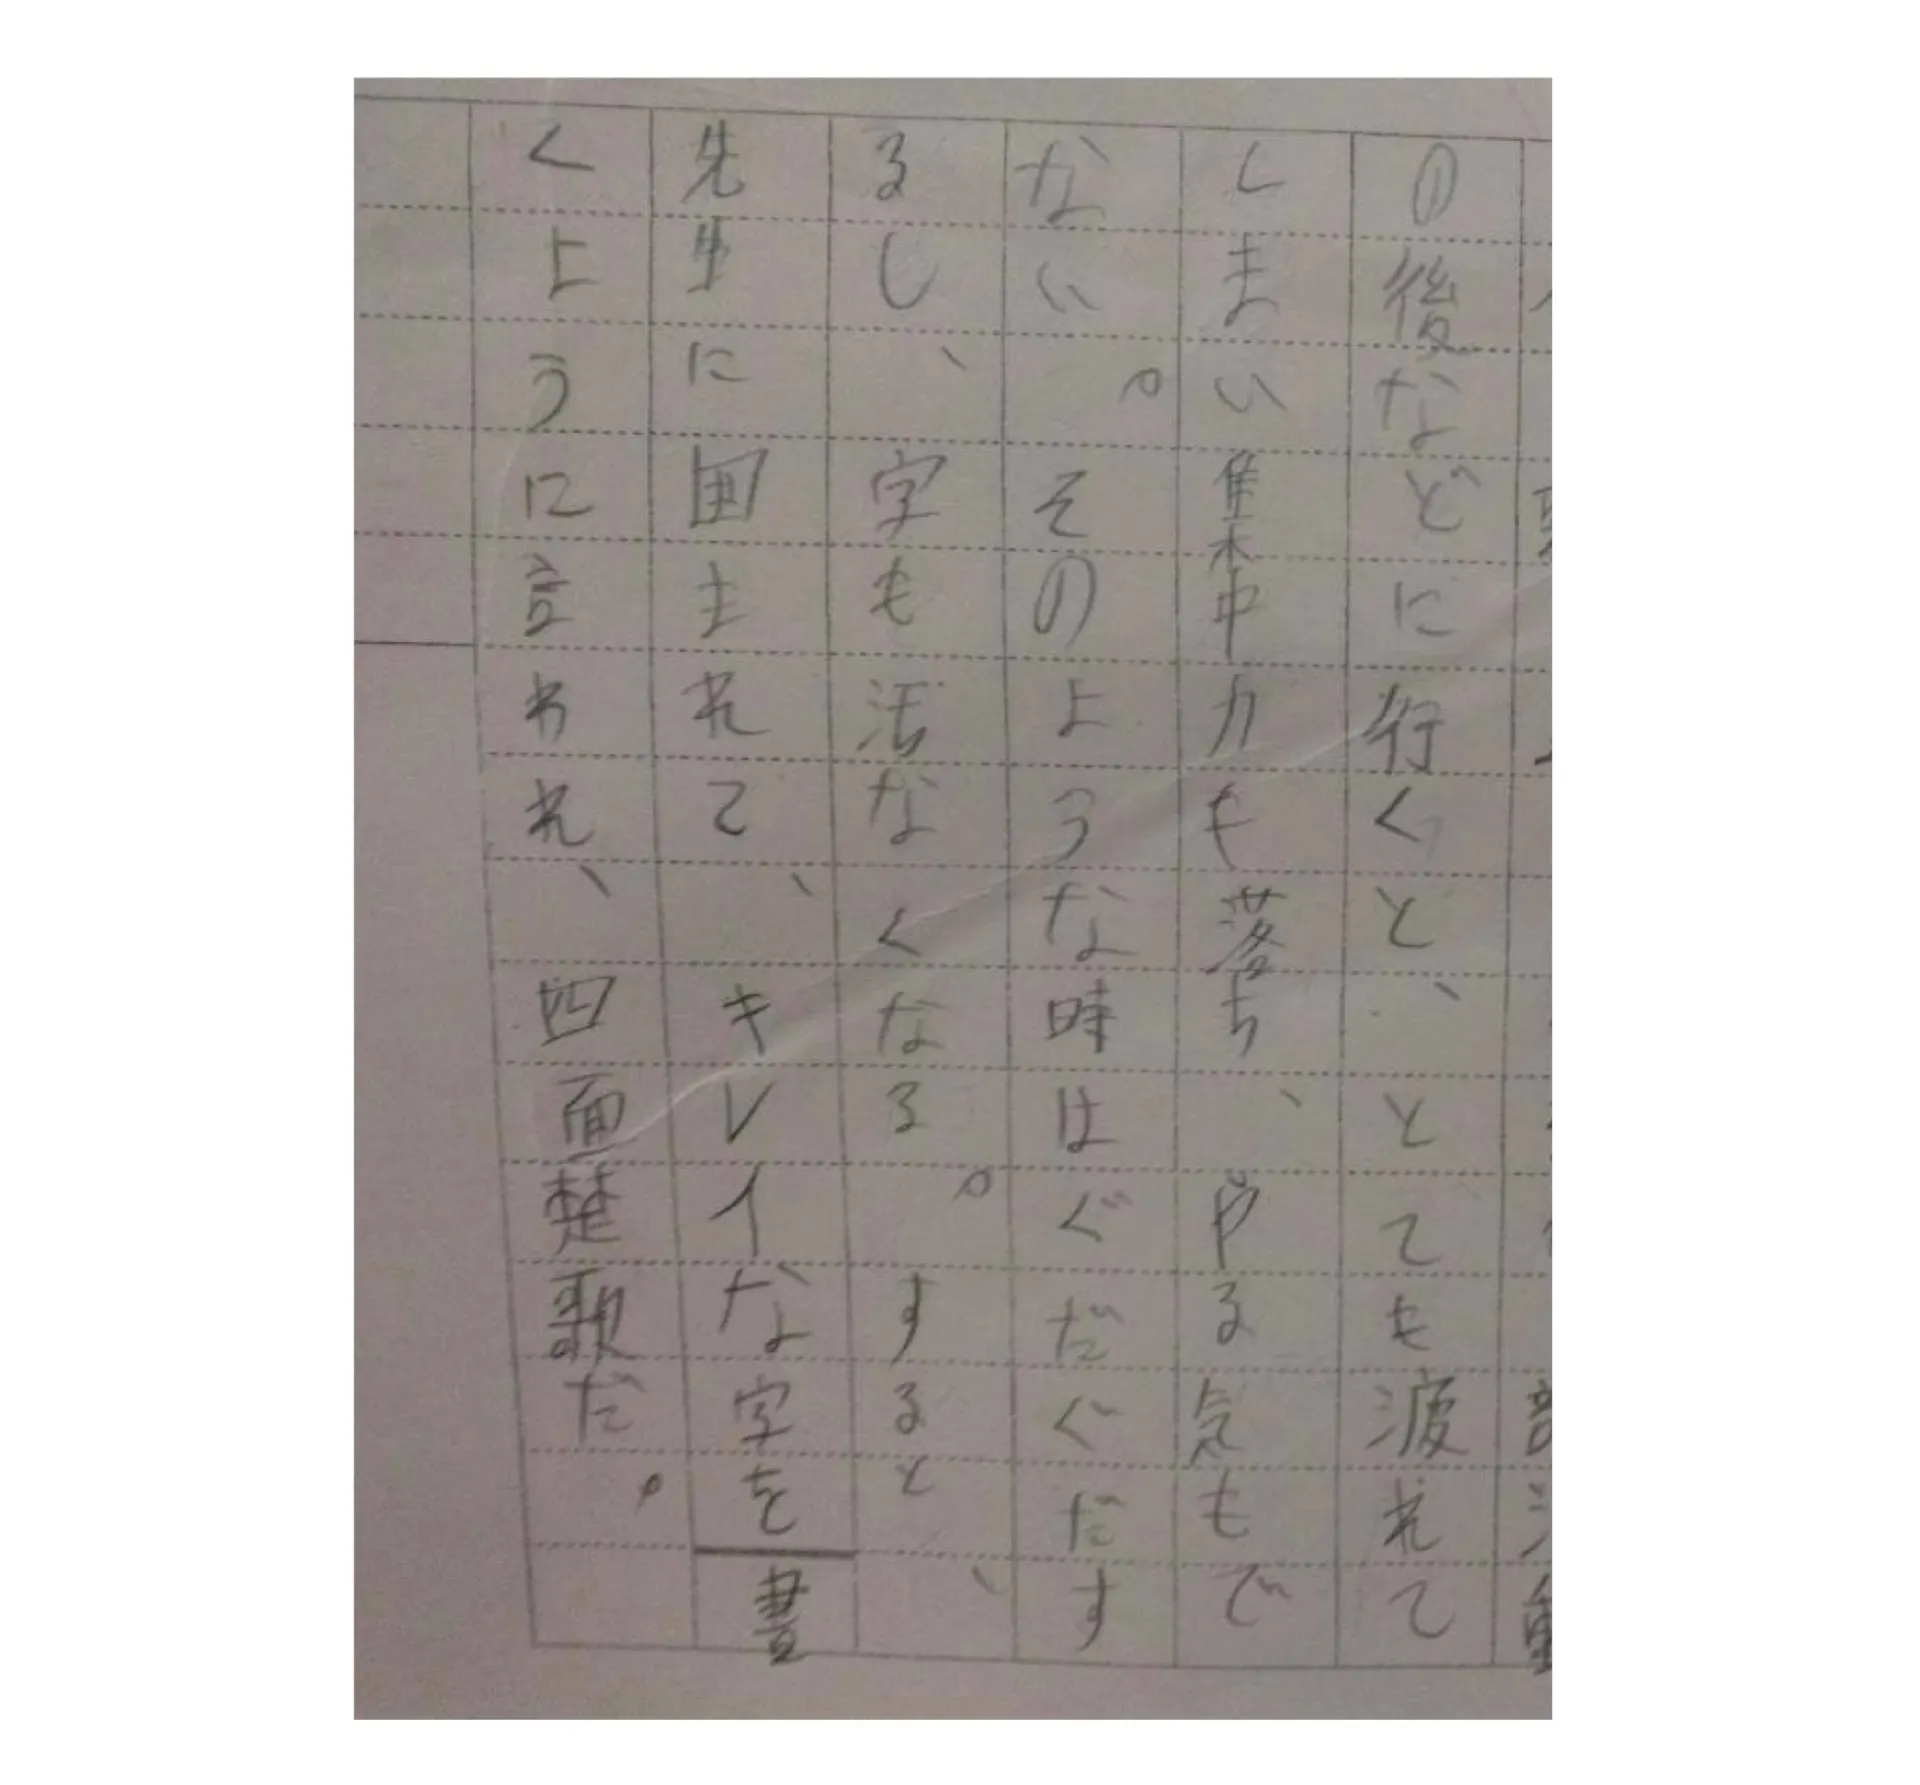 の後などに行くと、とても疲れて
しまい集中力も落ち、やる気もで
ない。そのような時はぐだぐだす
るし、字も汚なくなる。すると、
先生に囲まれて、キレイな字を書
くように言われ、四面楚歌だ。